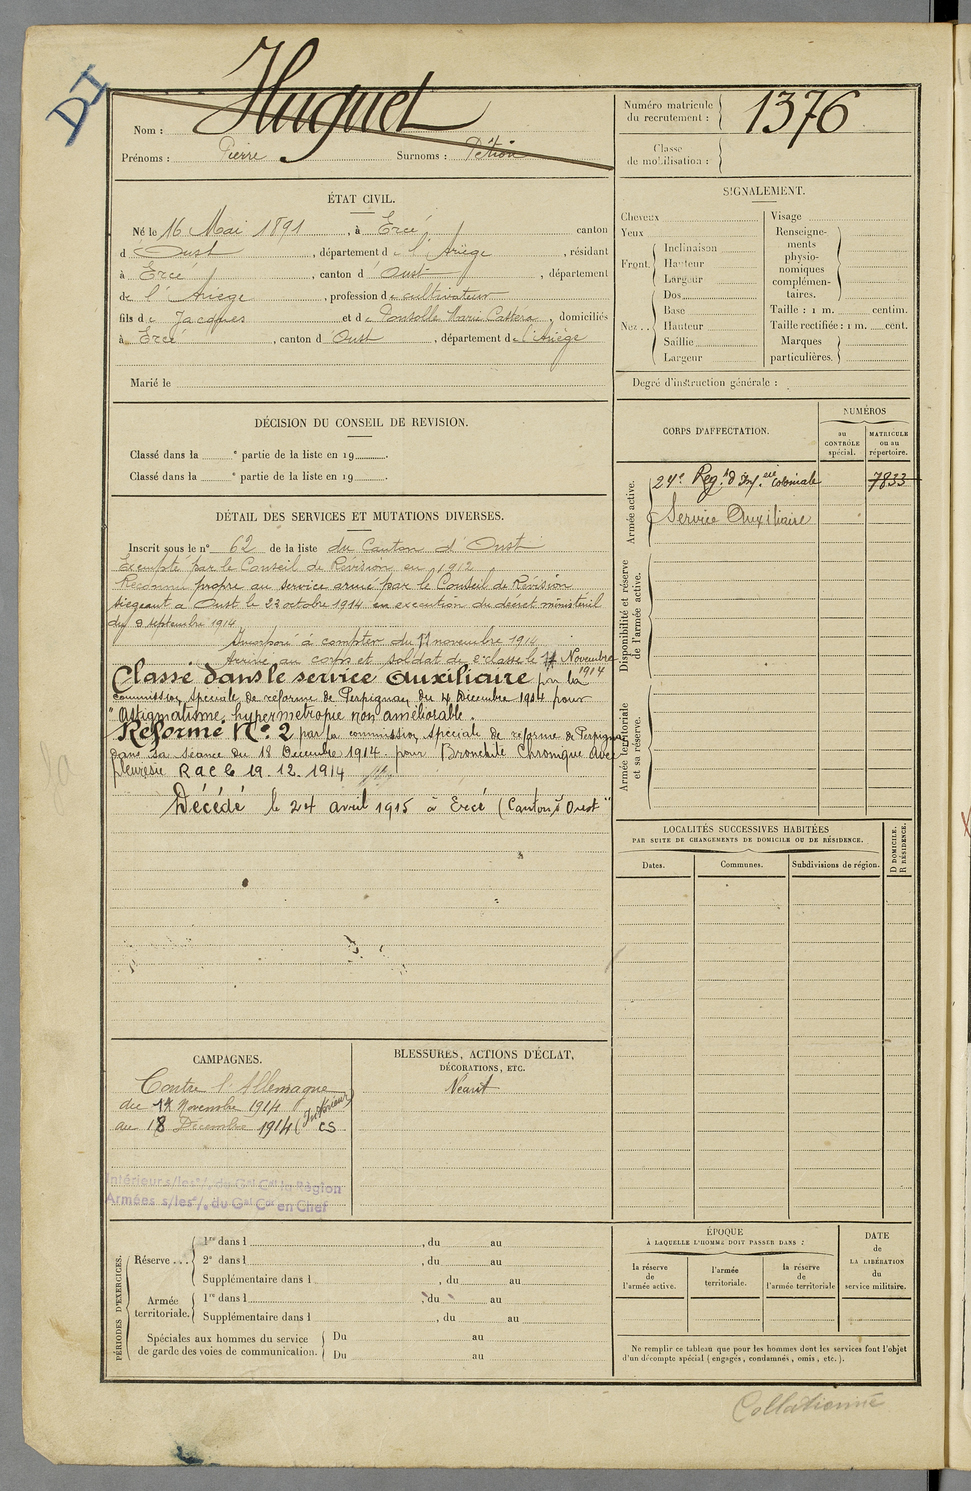 DI
Nom : Huguet
Prénoms : Pierre Surnoms : Pétion
Numéro matricule du recrutement : 1376
Classe de mobilisation :
ÉTAT CIVIL.
Né le 16 Mai 1891, à Ercé canton
d Oust, département de l'Ariège, résidant
à Ercé, canton d'Oust, département
de l'Ariège, profession de cultivateur
fils de Jacques et de Ponsolle Marie Castéra, domiciliés
à Ercé, canton d'Oust, département de l'Ariège
Marié le
SIGNALEMENT.
Cheveux
Yeux
Front. Inclinaison
Hauteur
Largeur
Nez .. Dos
Base
Hauteur
Saillie
Largeur
Visage
Renseigne-
ments
physio-
nomiques
complémen-
taires.
Taille : 1 m. centim.
Taille rectifiée : 1 m. cent.
Marques
particulières.
Degré d'instruction générale :
DÉCISION DU CONSEIL DE REVISION.
Classé dans la e partie de la liste en 19 .
Classé dans la e partie de la liste en 19 .
CORPS D'AFFECTATION.
NUMÉROS
au CONTRÔLE spécial.
MATRICULE ou au répertoire.
Armée active.
24e Régt d'Inf.erie coloniale 7833
Service Auxiliaire
Disponibilité et réserve de l'armée active.
Armée territoriale et sa réserve.
DÉTAIL DES SERVICES ET MUTATIONS DIVERSES.
Inscrit sous le n° 62 de la liste du Canton d'Oust
Exempté par le Conseil de Révision en 1912
Reconnu propre au service armé par le Conseil de Révision
siégeant à Oust le 22 octobre 1914 en exécution du décret ministériel
du 9 septembre 1914
Incorporé à compter du 11 novembre 1914
Arrivé au corps et soldat de 2e classe le 11 Novembre
1914
Classé dans le service Auxiliaire par la
commission spéciale de réforme de Perpignan du 4 Décembre 1914 pour
"Astigmatisme hypermetropie non améliorable.
Réformé N° 2 par la commission spéciale de réforme de Perpignan
dans sa séance du 18 Décembre 1914 pour Bronchite Chronique avec
pleurésie R a c le 19.12.1914
Décédé le 24 avril 1915 à Ercé (Canton d'Oust"
LOCALITÉS SUCCESSIVES HABITÉES
PAR SUITE DE CHANGEMENTS DE DOMICILE OU DE RÉSIDENCE.
Dates.
Communes.
Subdivisions de région.
D DOMICILE.
R RÉSIDENCE.
CAMPAGNES.
Contre l'Allemagne
du 11 Novembre 1914
au 18 Décembre 1914 (Intérieur)
CS
Intérieur s/les °/. du Gal Ct la Région
Armées s/les °/. du Gal Ct en Chef
BLESSURES, ACTIONS D'ÉCLAT,
DÉCORATIONS, ETC.
Néant
PÉRIODES D'EXERCICES.
Réserve ...
1re dans l , du au
2e dans l , du au
Supplémentaire dans l , du au
Armée territoriale.
1re dans l , du au
Supplémentaire dans l , du au
Spéciales aux hommes du service
de garde des voies de communication.
Du au
Du au
ÉPOQUE
À LAQUELLE L'HOMME DOIT PASSER DANS :
la réserve de l'armée active.
l'armée territoriale.
la réserve de l'armée territoriale
DATE
de
LA LIBÉRATION
du
service militaire.
Ne remplir ce tableau que pour les hommes dont les services font l'objet
d'un décompte spécial (engagés, condamnés, omis, etc.).
Collationné